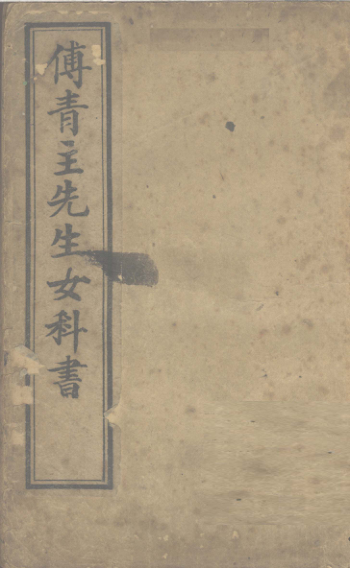 傅青主先生女科書